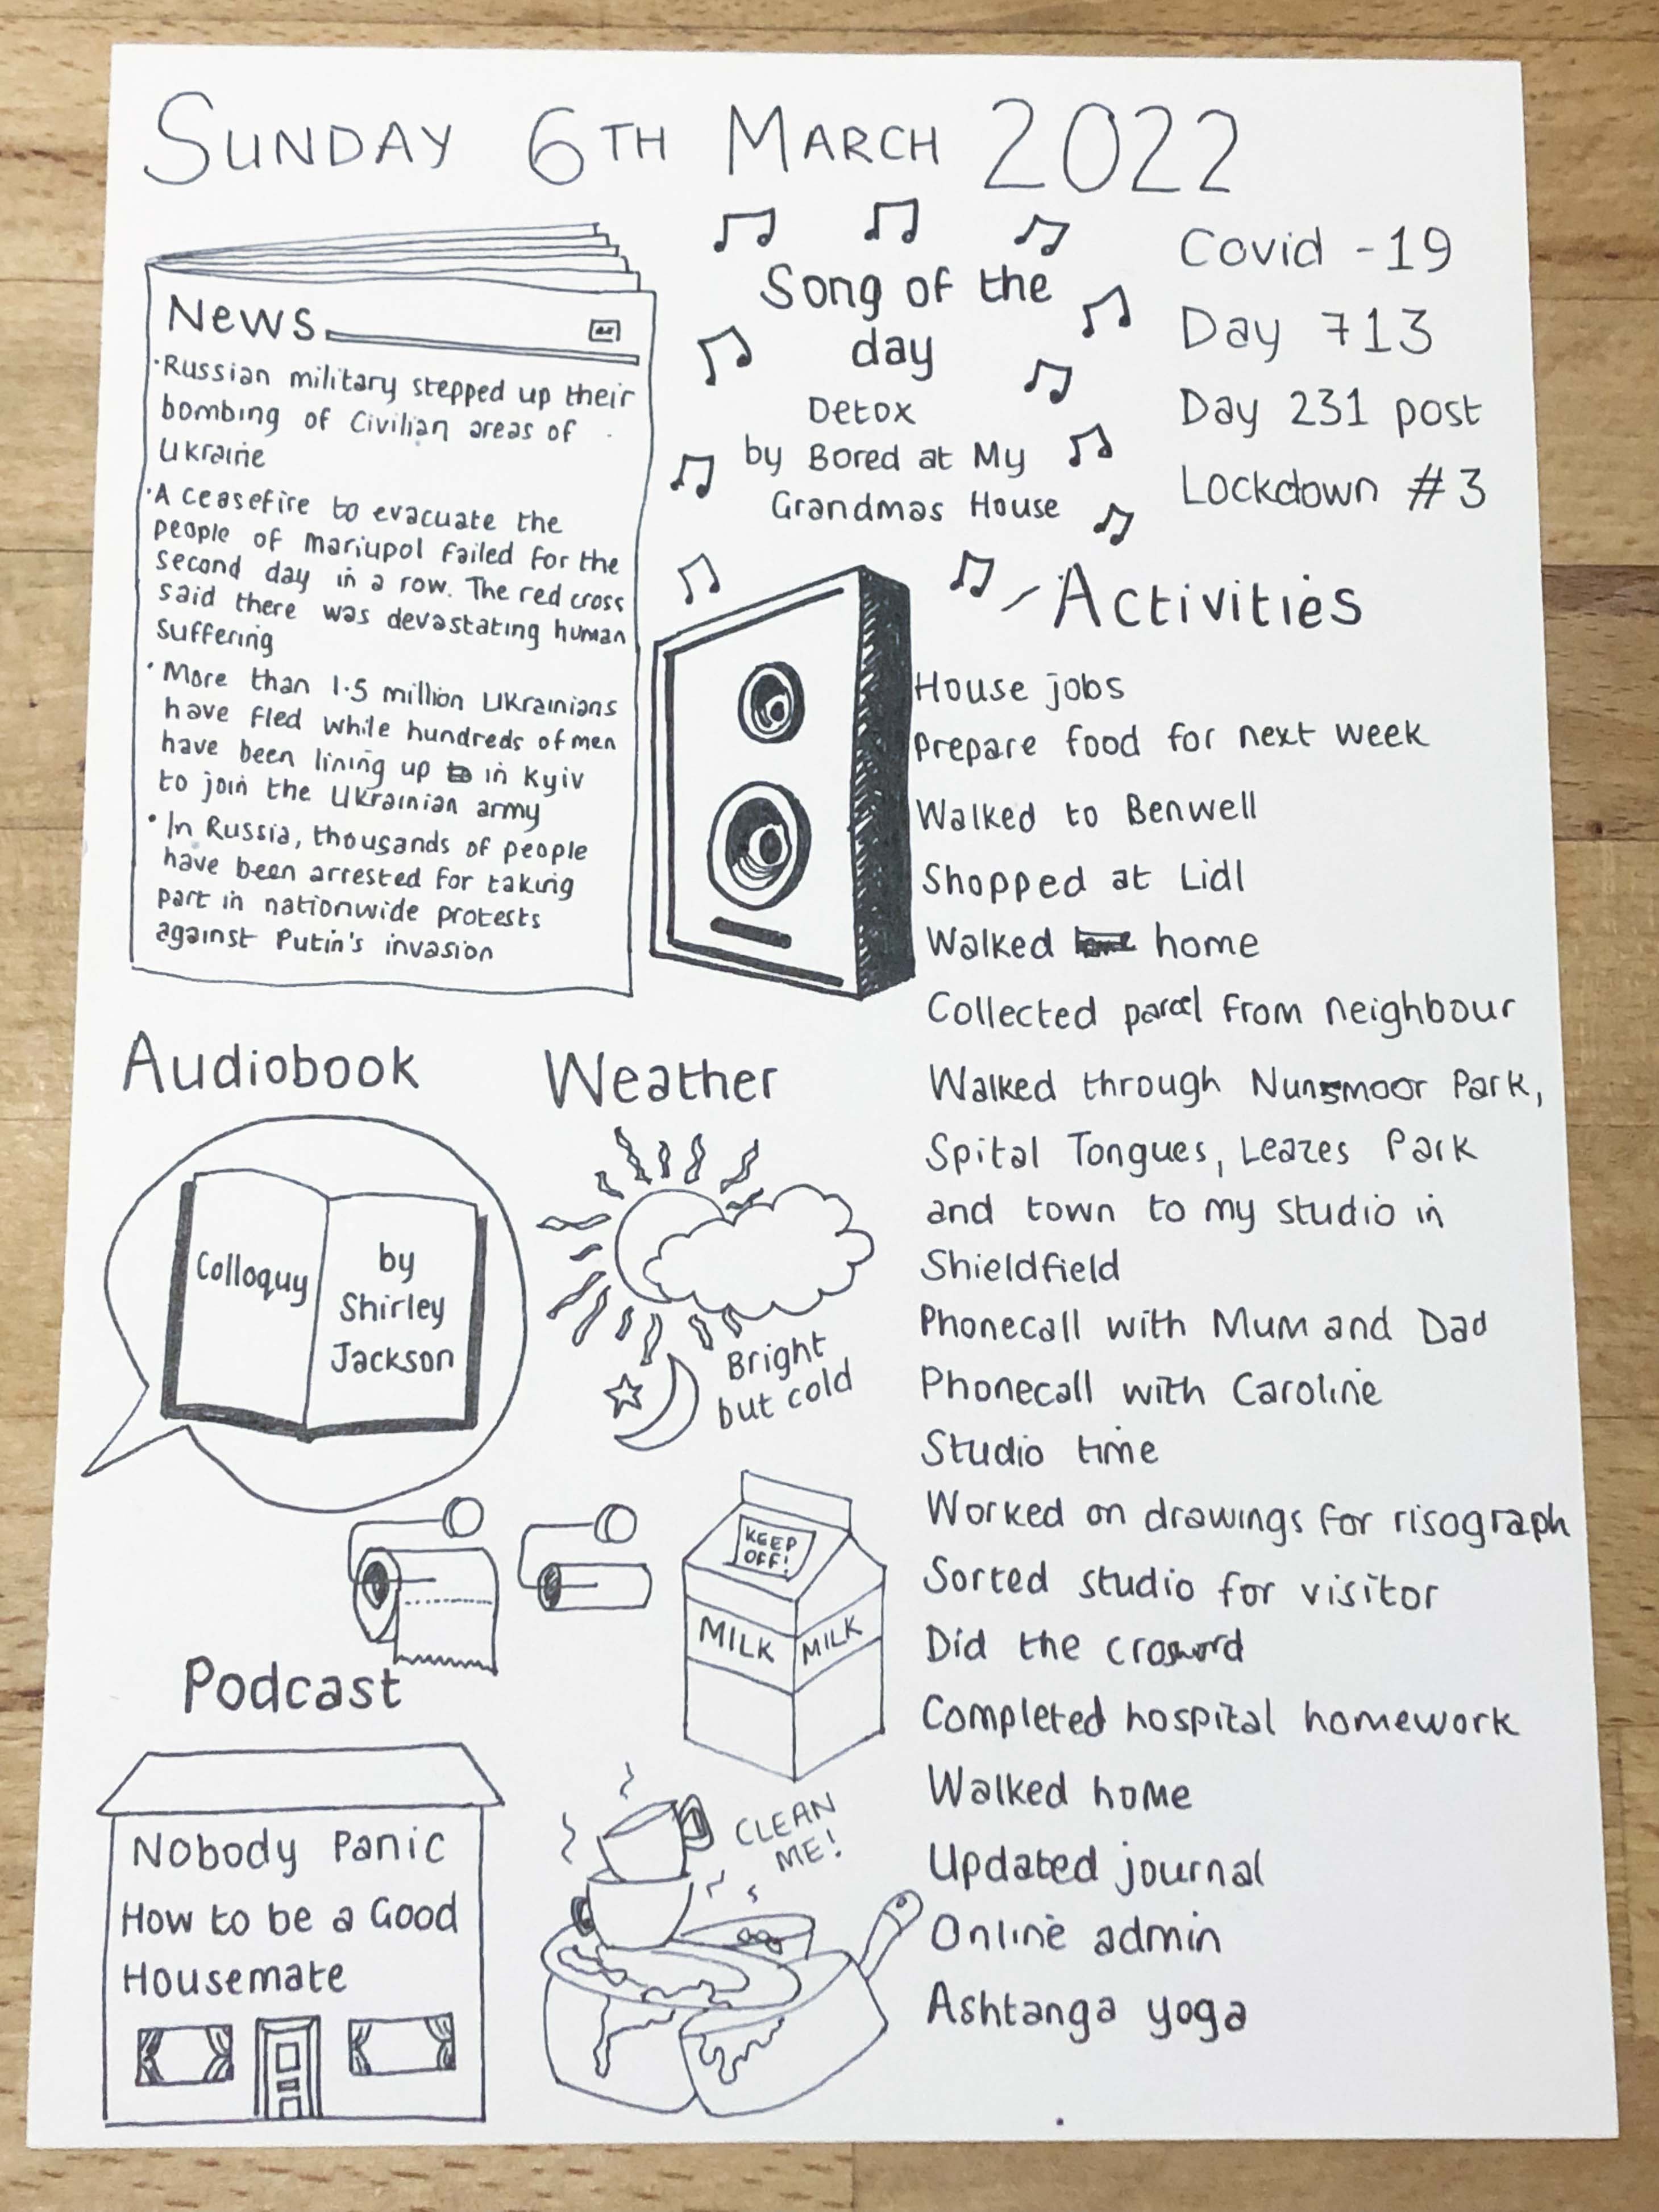 SUNDAY 6TH MARCH 2022
News
·Russian military stepped up their
bombing of Civilian areas of
Ukraine
·A ceasefire to evacuate the
people of Mariupol failed for the
second day in a row. The red cross
said there was devastating human
suffering
·More than 1.5 million Ukrainians
have fled while hundreds of men
have been lining up in Kyiv
to join the Ukrainian army
·In Russia, thousands of people
have been arrested for taking
part in nationwide protests
against Putin's invasion
Song of the
day
Detox
by Bored at My
Grandmas House
Covid -19
Day 713
Day 231 post
Lockdown #3
Activities
House jobs
Prepare food for next week
Walked to Benwell
Shopped at Lidl
Walked home
Collected parcel from neighbour
Walked through Nunsmoor Park,
Spital Tongues, Leazes Park
and town to my studio in
Shieldfield
Phonecall with Mum and Dad
Phonecall with Caroline
Studio time
Worked on drawings for risograph
Sorted studio for visitor
Did the crosword
Completed hospital homework
Walked home
Updated journal
Online admin
Ashtanga yoga
Audiobook
Colloquy
by
Shirley
Jackson
Weather
Bright
but cold
KEEP
OFF!
MILK
MILK
Podcast
Nobody Panic
How to be a Good
Housemate
CLEAN
ME!